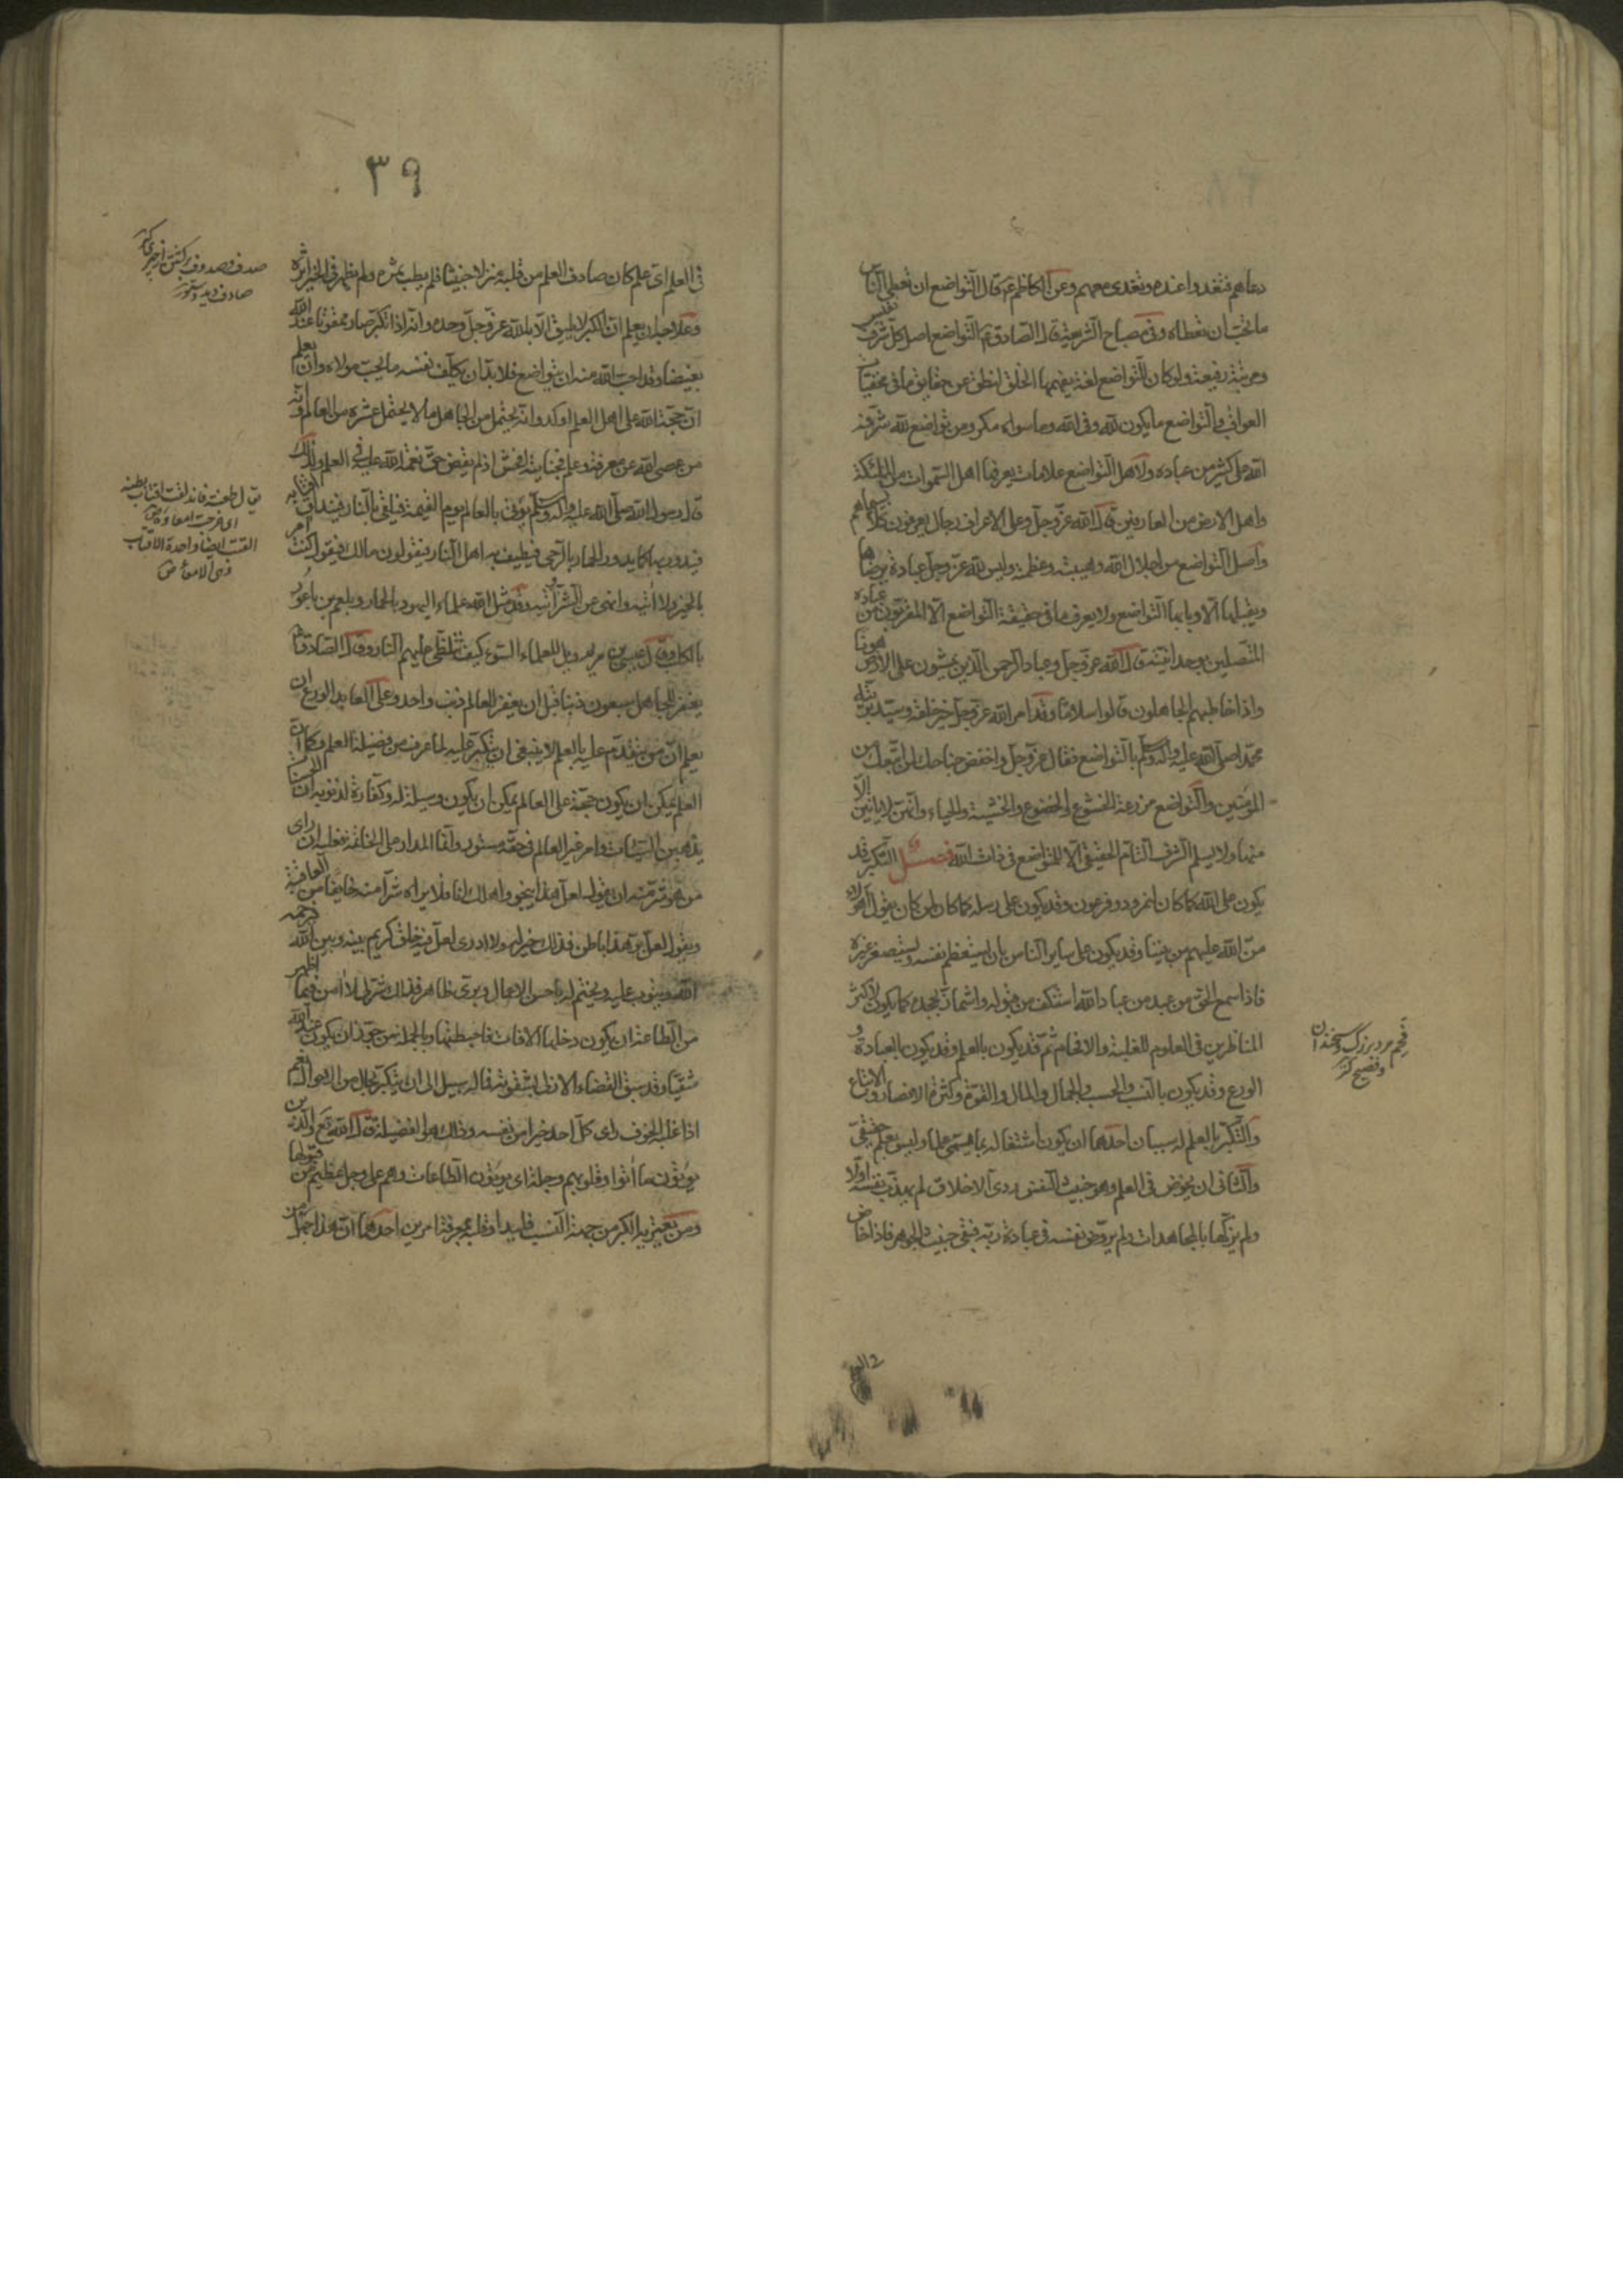 دعاهم فتغدوا عنده وتغدى معهم وعن الكاظم ع قال التواضع ان تعطى الناس
ما تحب ان تعطاه وفى مصباح الشريعة قال الصادق ع التواضع اصل كل شرف نفيس
ومرتبة رفيعة ولو كان للتواضع لغة يفهمها الخلق لنطق عن حقايق ما فى مخفيات
العواقب والتواضع ما يكون لله وفى الله وما سواه مكر ومن تواضع لله شرفه
الله على كثير من عباده ولاهل التواضع علامات يعرفها اهل السموات من الملئكة
واهل الارض من العارفين قال الله عز وجل وعلى الاعراف رجال يعرفون كلا بسيماهم
واصل التواضع من اجلال الله وهيبته وعظمته وليس لله عز وجل عبادة يرضاها
ويقبلها الا وبابها التواضع ولا يعرف ما فى حقيقة التواضع الا المقربون من عباده
المتصلين بوحدانيته قال الله عز وجل وعباد الرحمن الذين يمشون على الارض هونا
واذا خاطبهم الجاهلون قالوا سلاما وقد امر الله عز وجل خير خلقه وسيد بريته
محمدا صلى الله عليه وآله وسلم بالتواضع فقال عز وجل واخفض جناحك لمن اتبعك من
المؤمنين والتواضع مزرعة الخشوع والخضوع والخشية والحياء وانهن لا ياتين الا
منها ولا يسلم الشرف التام الحقيقى الا للمتواضع فى ذات الله فصل التكبر قد
يكون على الله كما كان لنمرود وفرعون وقد يكون على رسله كما كان لمن كان يقول اهولاء
من الله عليهم من بيننا وقد يكون على ساير الناس بان يستعظم نفسه ويستصغر غيره
فاذا سمع الحق من عبد من عباد الله استنكف من قبوله واشمأز بجحده كما يكون لاكثر
المناظرين فى العلوم للغلبة والافحام ثم قد يكون بالعلم وقد يكون بالعبادة و
الورع وقد يكون بالنسب والحسب والجمال والمال والقوة وكثرة الانصار والاتباع
والتكبر بالعلم له سببان احدهما ان يكون اشتغاله بما يسمى علما وليس بعلم حقيقى
والثانى ان يخوض فى العلم وهو خبيث النفس ردى الاخلاق لم يهذب نفسه اولا
ولم يزكها بالمجاهدات ولم يروض نفسه فى عبادة ربه فبقى خبيث الجوهر فاذا خاض
فى العلم
فحم مرد بزرگ و سخندان
و فصيح
٣٩
فى العلم اى علم كان صادف العلم من قلبه منزلا خبيثا فلم يطب ثمره ولم يظهر فى الخير اثره
وعلاجه ان يعلم ان الكبر لا يليق الا بالله عز وجل وحده وانه اذا تكبر صار ممقوتا عند الله
بغيضا وقد احب الله منه ان يتواضع فلا بد ان يكلف نفسه ما يحب مولاه وان يعلم
ان حجة الله على اهل العلم اوكد وانه يحتمل من الجاهل ما لا يحتمل عشره من العالم وانه
من عصى الله عن معرفة وعلم فجنايته افحش اذ لم يقض حق نعمة الله عليه فى العلم ولذلك
قال رسول الله صلى الله عليه وآله وسلم يؤتى بالعالم يوم القيمة فيلقى بالنار فتندلق اقتابه
فيدور بها كما يدور الحمار بالرحى فيطيف به اهل النار فيقولون مالك فيقول كنت آمر
بالخير ولا آتيه وانهى عن الشر وآتيه وقد مثل الله علماء اليهود بالحمار وبلعم بن باعور
بالكلب وقال عيسى بن مريم ويل للعلماء السوء كيف تتلظى عليهم النار وقال الصادق ع
يغفر للجاهل سبعون ذنبا قبل ان يغفر للعالم ذنب واحد وعلى العابد الورع ان
يعلم ان من يتقدم عليه بالعلم لا ينبغى ان يتكبر عليه لما عرف من فضيلة العلم وكما ان
العلم يمكن ان يكون حجة على العالم يمكن ان يكون وسيلة له وكفارة لذنوبه ان الحسنات
يذهبن السيئات وامر غير العالم فى حقه مستور وانما المدار على الخاتمة فعليه ان راى
من هو شر منه ان يقول لعل هذا ينجو واهلك انا فلا يراه شرا منه خايفا من العاقبة
ويقول لعل بر هذا باطن فذلك خير له ولا ادرى لعل فيه خلق كريم بينه وبين الله فيرحمه
الله ويتوب عليه ويختم له باحسن الاعمال وبرى ظاهر فذلك شر لى لا آمن فيما اظهر
من الطاعة ان يكون دخلها الافات فاحبطتها وبالجملة من جوز ان يكون عند الله
شقيا وقد سبق القضاء الازلى بشقوته فما له سبيل الى ان يتكبر بحال من الاحوال نعم
اذا غلبه الخوف راى كل احد خيرا من نفسه وذلك هو الفضيلة قال الله تع والذين
يؤتون ما آتوا وقلوبهم وجلة اى يؤتون الطاعات وهم على وجل عظيم من قبولها
ومن يعتريه الكبر من جهة النسب فليداو قلبه بمعرفة امرين احدهما ان هذا جهل من
صادف ديد